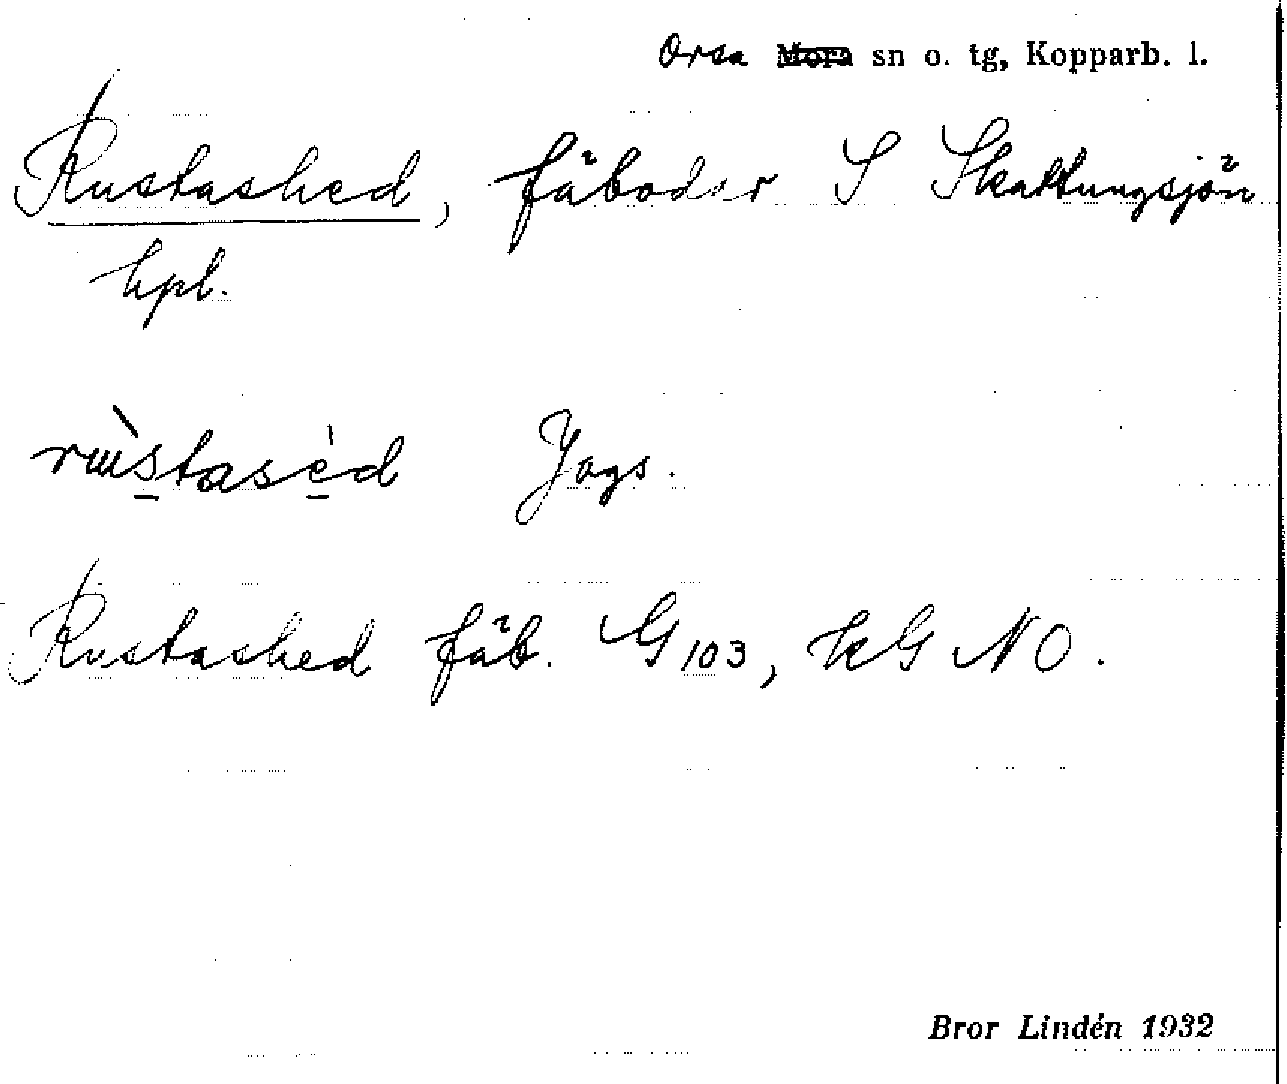 Orsa Mora sn o. tg, Kopparb. l.
Rustashed, fäboder S Skattungsjön
hpl.
Yngs.
Rustashed fäb. G103, KG NO.
Bror Lindén 1932